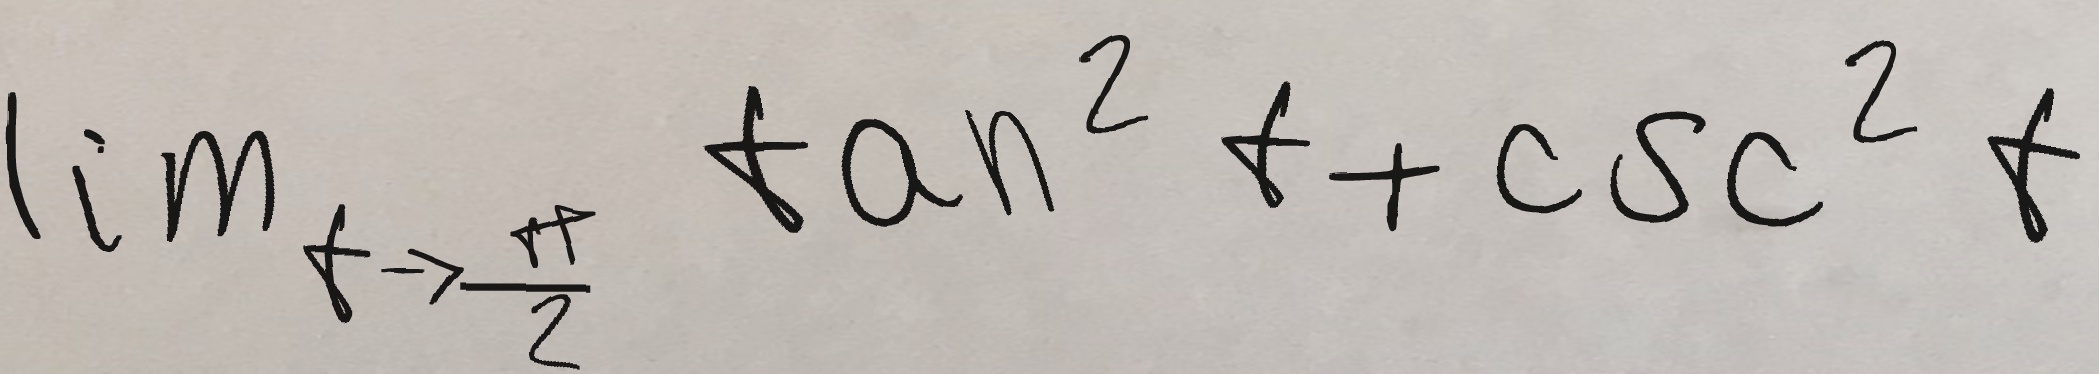 lim_{t→\frac{π}{2}} tan² t + csc² t